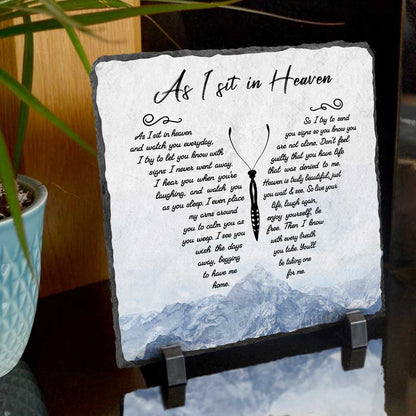 As I sit in Heaven
As I sit in heaven
and watch you everyday,
I try to let you know with
signs I never went away.
I hear you when you're
laughing, and watch you
as you sleep. I even place
my arms around
you to calm you as
you weep. I see you
wish the days
away, begging
to have me
home.
So I try to send
you signs so you know you
are not alone. Don't feel
guilty that you have life
that was denied to me.
Heaven is truly beautiful, just
you wait & see. So live your
life, laugh again,
enjoy yourself, be
free. Then I know
with every breath
you take. You'll
be taking one
for me.